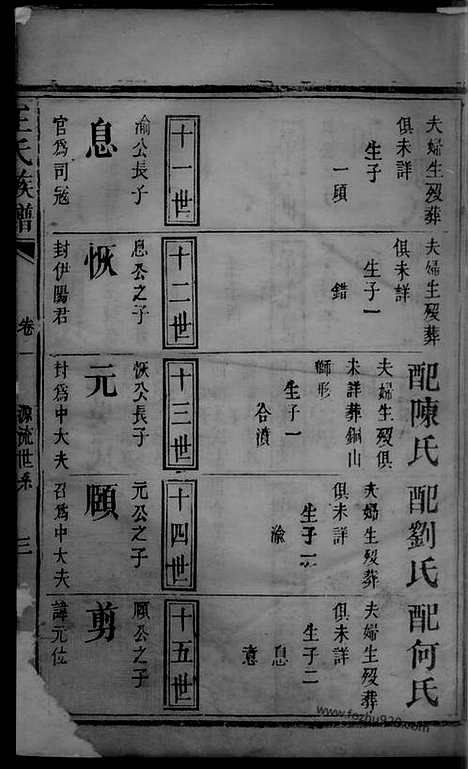 夫婦生歿葬
俱未詳
生子
一頎
十一世
渝公長子
息
官為司冦
夫婦生歿葬
俱未詳
生子一
錯
十二世
息公之子
恢
封伊陽君
配陳氏
夫婦生歿俱
未詳葬銅山
獅形
生子一
十三世
恢公長子
元
封為中大夫
配劉氏
夫婦生歿葬
俱未詳
生子一
渝
十四世
元公之子
頤
召為中大夫
配何氏
夫婦生歿葬
俱未詳
生子二
息
意
十五世
頤公之子
剪
諱元位
王氏族譜
卷一
源流世系
三
www.fozhu920.com